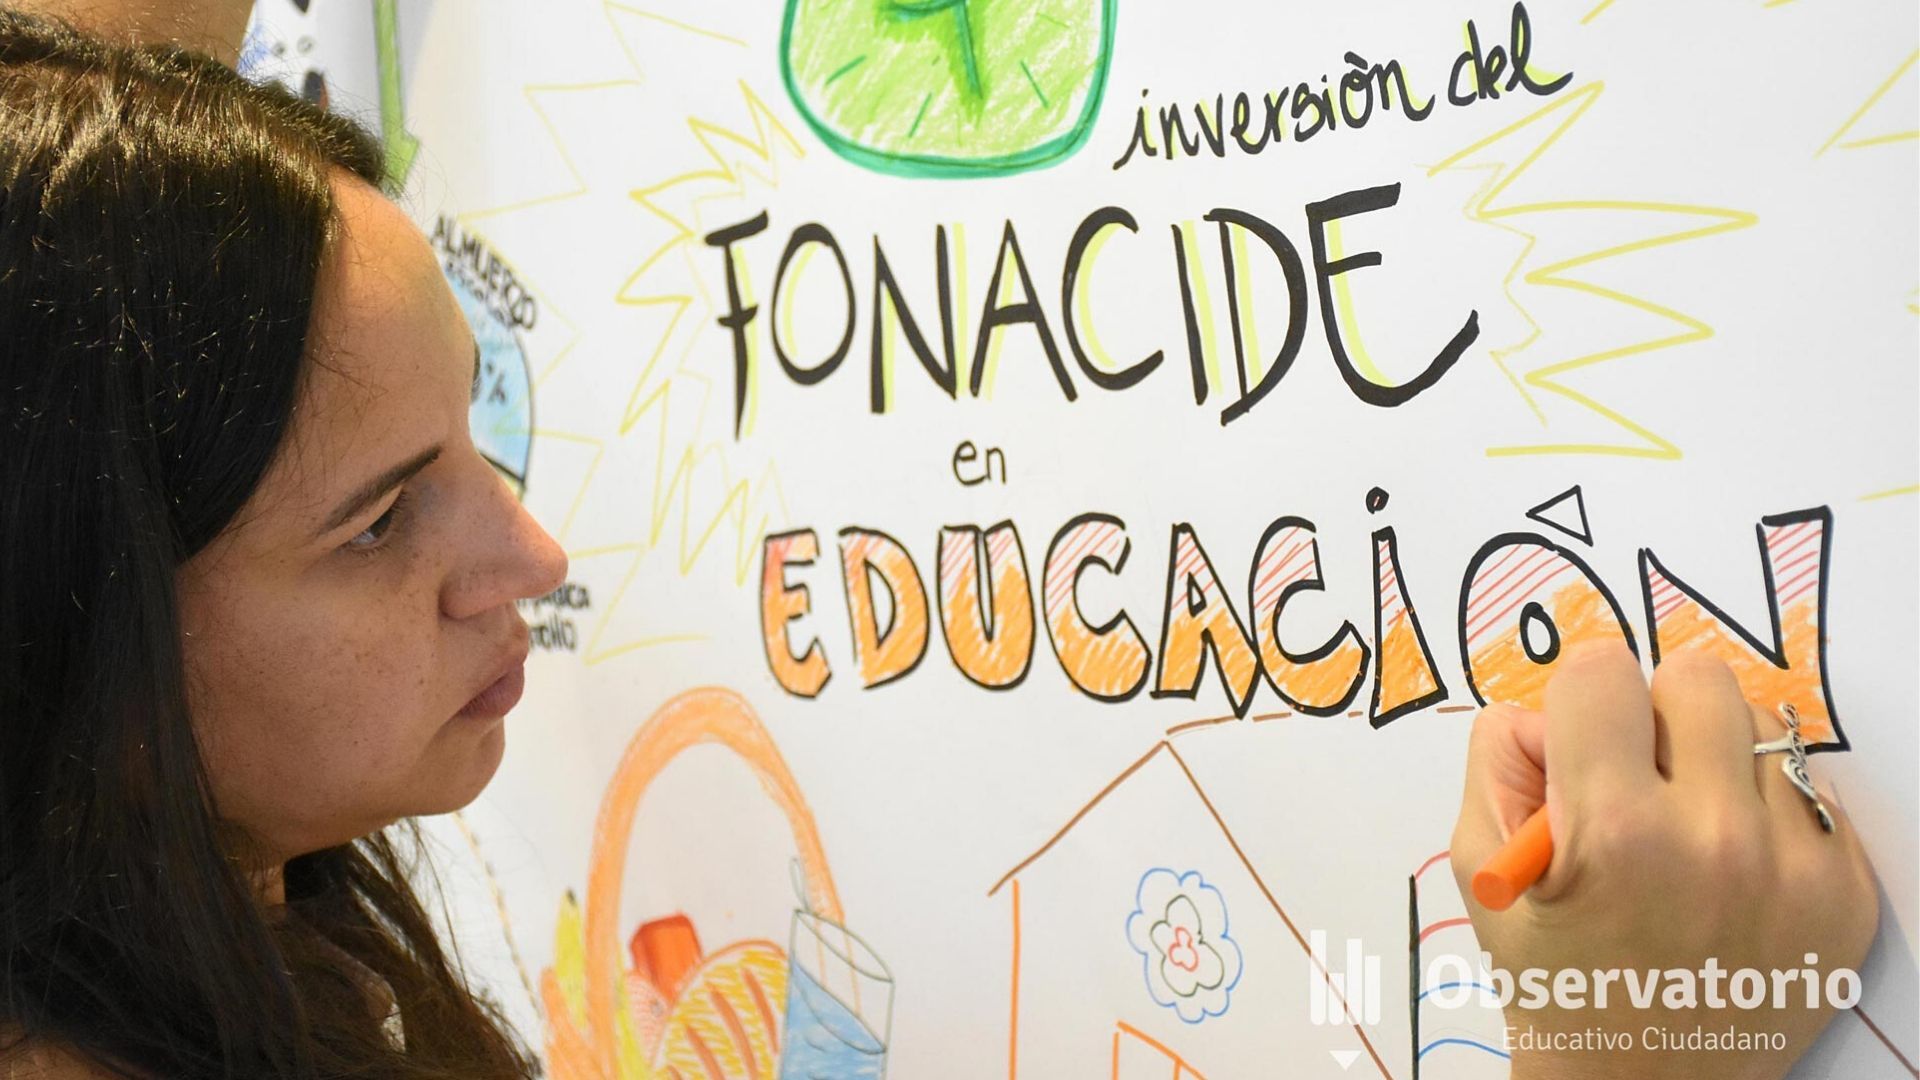 inversiòn del
FONACIDE
en
EDUCACIÒN
ALMUERZO
escolar
%
Observatorio
Educativo Ciudadano